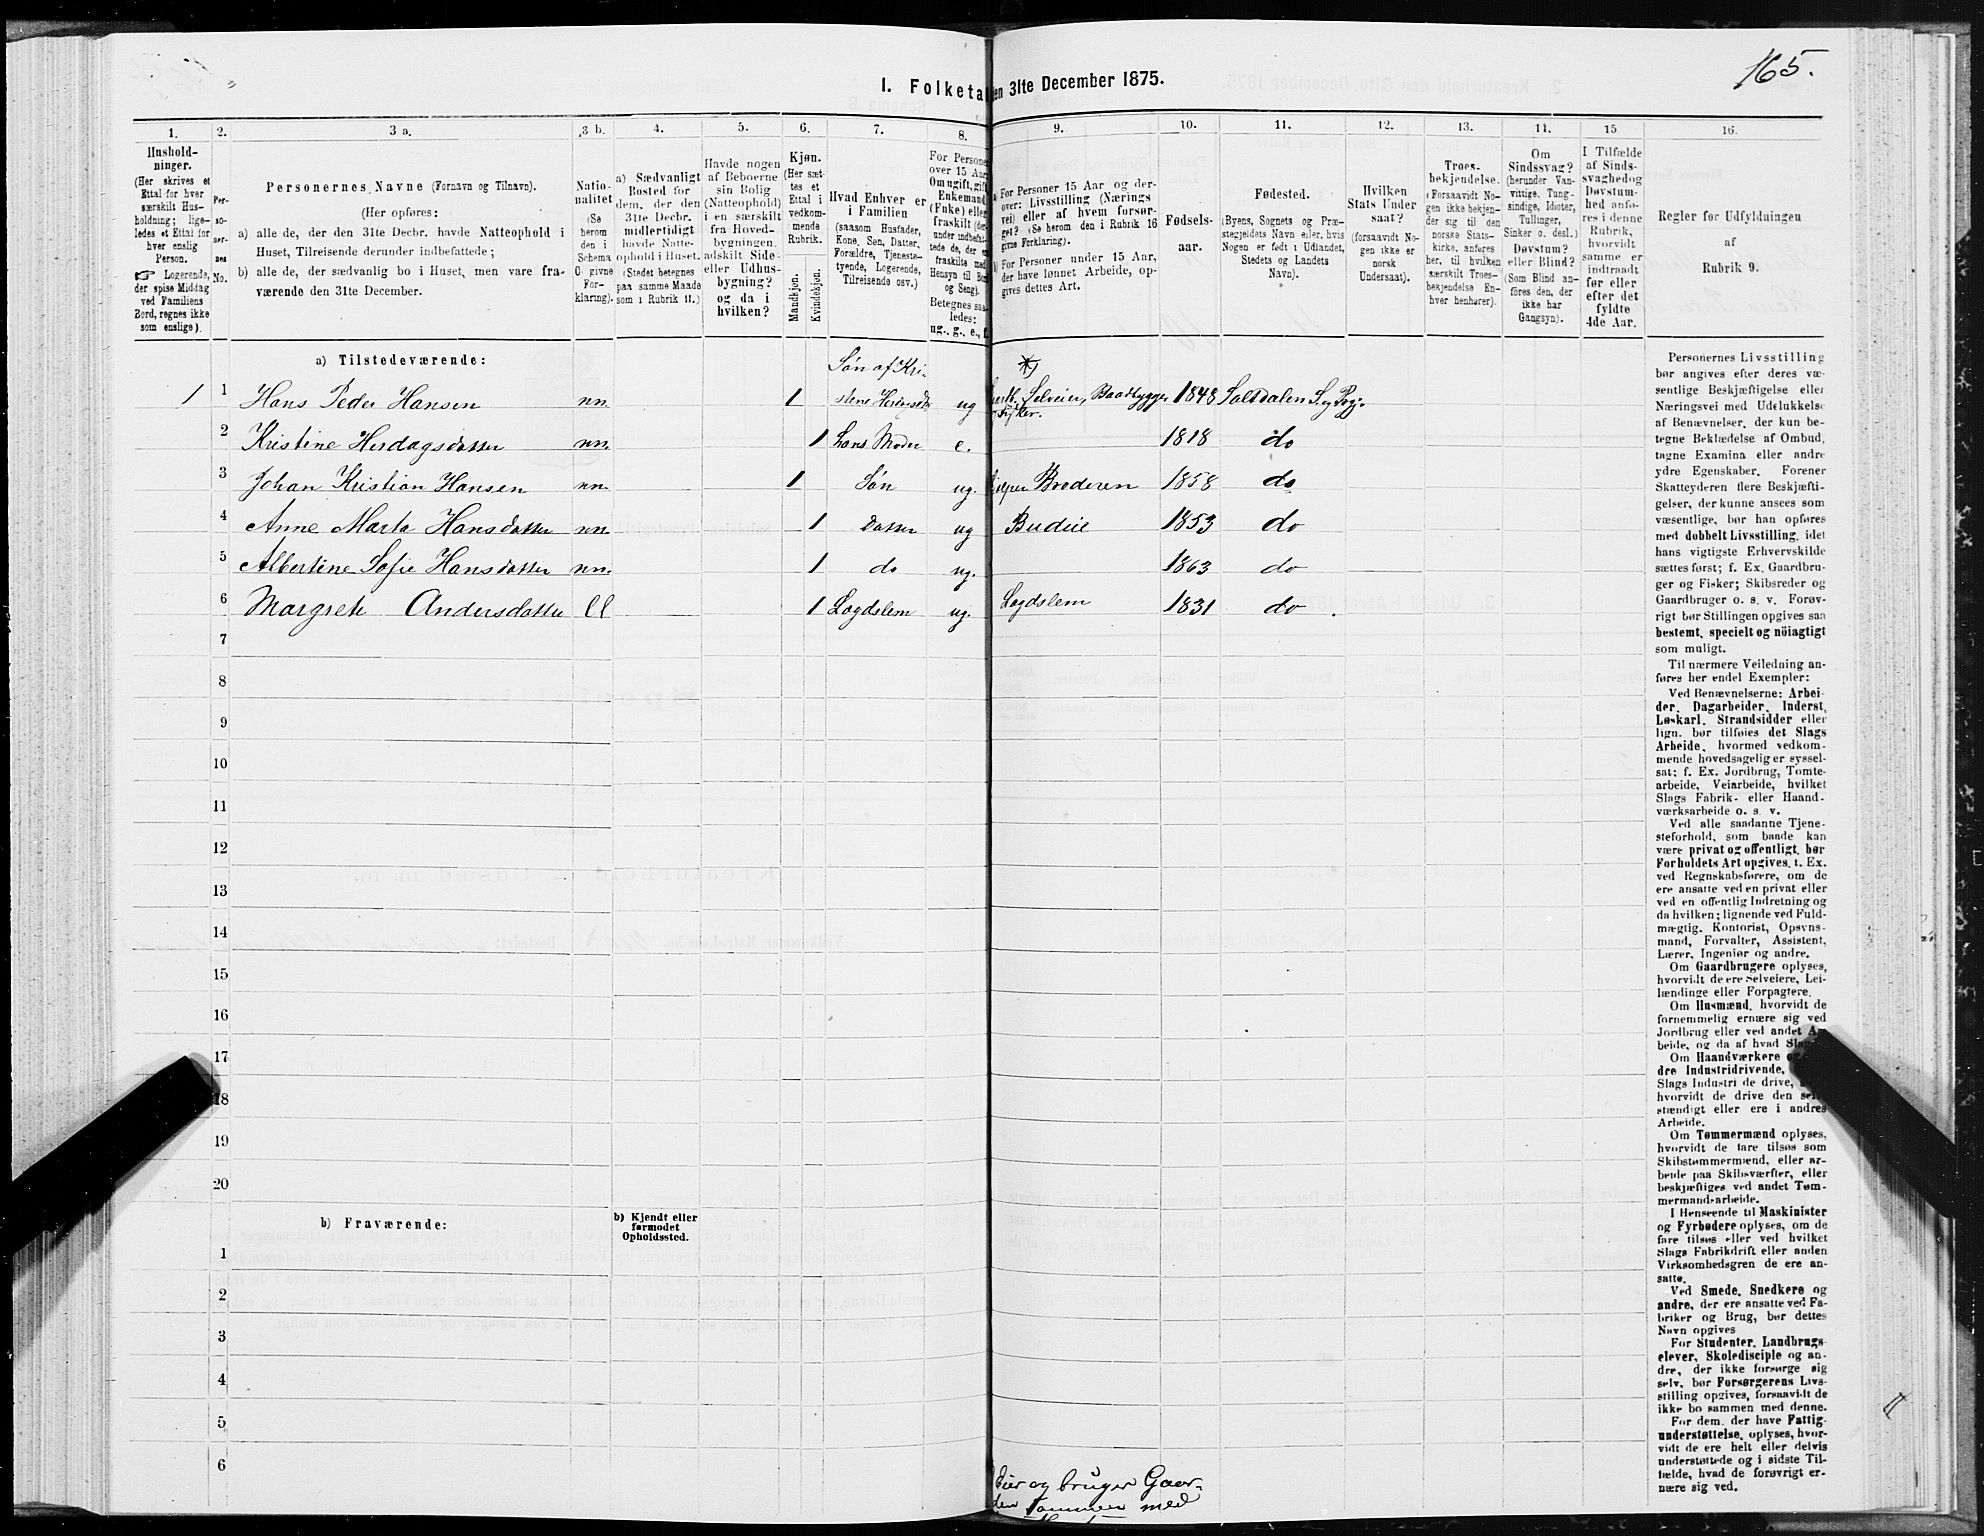 165.
I. Folketa
en 31te December 1875.
1. 2. 3 a. 3 b. 4. 5. 6. 7. 8. 9. 10. 11. 12. 13. 14. 15. 16.
Hushold-
ninger.
(Her skrives et
Ettal for hver
særskilt Hus-
holdning; lige-
ledes et Ettal for
hver enslig
Person.
☞ Logerende,
der spise Middag
ved Familiens
Bord, regnes ikke
som enslige).
Per-
so-
ner-
nes
No.
Personernes Navne (Fornavn og Tilnavn).
(Her opføres:
a) alle de, der den 31te Decbr. havde Natteophold i
Huset, Tilreisende derunder indbefattede;
b) alle de, der sædvanlig bo i Huset, men vare fra-
værende den 31te December.
Natio-
nalitet
(Se
herom
den i
Schema
C givne
For-
klaring).
a) Sædvanligt
Bosted for
dem, der den
31te Decbr.
midlertidigt
havde Natte-
ophold i Huset.
(Stedet betegnes
paa samme Maade
som i Rubrik 11.)
Havde nogen
af Beboerne
sin Bolig
(Natteophold)
i en særskilt
fra Hoved-
bygningen
adskilt Side-
eller Udhus-
bygning?
og da i
hvilken?
Kjøn.
(Her sæt-
tes et
Ettal i
vedkom-
mende
Rubrik.
Mandkjøn.
Kvindekjøn.
Hvad Enhver er
i Familien
(saasom Husfader,
Kone, Søn, Datter,
Forældre, Tjeneste-
tyende, Logerende,
Tilreisende osv.)
For Persone
over 15 Aar
Om ugift, gift
Enkemand
(Enke) eller
fraskilt (der-
under indbefat-
tede de, der e
fraskilte med
Hensyn til Bo
og Seng).
Betegnes saa
ledes:
ug., g., e., f.
For Personer 15 Aar og der-
over: Livsstilling (Nærings
vei) eller af hvem forsør-
get? (Se herom den i Rubrik 16
givne Forklaring).
For Personer under 15 Aar,
der have lønnet Arbeide, op-
gives dettes Art.
Fødsels-
aar.
Fødested.
(Byens, Sognets og Præ-
stegjeldets Navn eller, hvis
Nogen er født i Udlandet,
Stedets og Landets
Navn).
Hvilken
Stats Under
saat?
(forsaavidt No-
gen ikke er
norsk
Undersaat).
Troes-
bekjendelse.
(Forsaavidt No-
gen ikke bekjen-
der sig til den
norske Stats-
kirke, anføres
her, til hvilken
særskilt Troes-
bekjendelse En-
hver henhører).
Om
Sindssvag?
(herunder Van-
vittige, Tung-
sindige, Idioter,
Tullinger,
Sinker o. desl.)
Døvstum?
eller Blind?
(Som Blind an-
føres den, der
ikke har
Gangsyn).
I Tilfælde
af Sinds-
svaghed og
Døvstum-
hed anfø-
res i denne
Rubrik,
hvorvidt
samme er
indtraadt
før eller
efter det
fyldte
4de Aar.
Regler for Udfyldningen
af
Rubrik 9.
a) Tilstedeværende:
Søn af Kri-
*)
1 1 Hans Peder Hansen nn. 1 ug Selveier, Baadbygger 1848 Saltdalen S. og Pgj.
Fisker.
2 Kristine Herdagsdatter nn. 1 Hans Moder e. 1818 do
3 Johan Kristian Hansen nn. 1 Søn ug. Broderen 1858 do
4 Anne Marta Hansdatter nn. 1 Datter ug Budeie 1853 do
5 Albertine Sofie Hansdatter nn. 1 do ug. 1863 do
6 Margrete Andersdatter ll 1 Lægdslem ug. Lægdslem 1831 do.
7
8
9
10
11
12
13
14
15
16
17
18
19
20
b) Fraværende:
b) Kjendt eller
formodet
Opholdssted.
1
2
3
4
5
6
Eier og bruger Gaar-
den sammen med
Personernes Livsstilling
bør angives efter deres væ-
sentlige Beskjæftigelse eller
Næringsvei med Udelukkelse
af Benævnelser, der kun be-
tegne Beklædelse af Ombud,
tagne Examina eller andre
ydre Egenskaber. Forener
Skatteyderen flere Beskjæfti-
gelser, der kunne ansees som
væsentlige, bør han opføres
med dobbelt Livsstilling, idet
hans vigtigste Erhvervskilde
sættes først; f. Ex. Gaardbru-
ger og Fisker; Skibsreder og
Gaardbruger o. s. v. Forøv-
rigt bør Stillingen opgives saa
bestemt, specielt og nöiagtigt
som muligt.
Til nærmere Veiledning an-
føres her endel Exempler:
Ved Benævnelserne: Arbei-
der, Dagarbeider, Inderst,
Løskarl, Strandsidder eller
lign. bør tilføies det Slags
Arbeide, hvormed vedkom-
mende hovedsagelig er syssel-
sat; f. Ex. Jordbrug, Tomte-
arbeide, Veiarbeide, hvilket
Slags Fabrik- eller Haand-
værksarbeide o. s. v.
Ved alle saadanne Tjene-
steforhold, som baade kan
være privat og offentligt, bør
Forholdets Art opgives, t. Ex.
ved Regnskabsførere, om de
ere ansatte ved en privat eller
ved en offentlig Indretning og
da hvilken; lignende ved Fuld-
mægtig, Kontorist, Opsyns-
mand, Forvalter, Assistent,
Lærer, Ingeniør og andre.
Om Gaardbrugere oplyses,
hvorvidt de ere Selveiere, Lei-
lændinge eller Forpagtere.
Om Husmænd, hvorvidt de
fornemmelig ernære sig ved
Jordbrug eller ved andet Ar
beide, og da af hvad Slag
Om Haandværkere o
dre Industridrivende,
Slags Industri de drive,
hvorvidt de drive den sel
stændigt eller ere i andres
Arbeide.
Om Tømmermænd oplyses,
hvorvidt de fare tilsøs som
Skibstømmermænd, eller ar-
beide paa Skibsværfter, eller
beskjæftiges ved andet Tøm-
mermandsarbeide.
I Henseende til Maskinister
og Fyrbødere oplyses, om de
fare tilsøs eller ved hvilket
Slags Fabrikdrift eller anden
Virksomhedsgren de ere an-
satte.
Ved Smede, Snedkere og
andre, der ere ansatte ved Fa-
briker og Brug, bør dettes
Navn opgives
For Studenter, Landbrugs-
elever, Skoledisciple og an-
dre, der ikke forsørge sig
selv, bør Forsørgerens Livs-
stilling opgives, forsaavidt de
ikke bo sammen med denne.
For dem, der have Fattig-
understøttelse, oplyses, hvor-
vidt de ere helt eller delvis
understøttede og i sidste Til-
fælde, hvad de forøvrigt er-
nære sig ved.